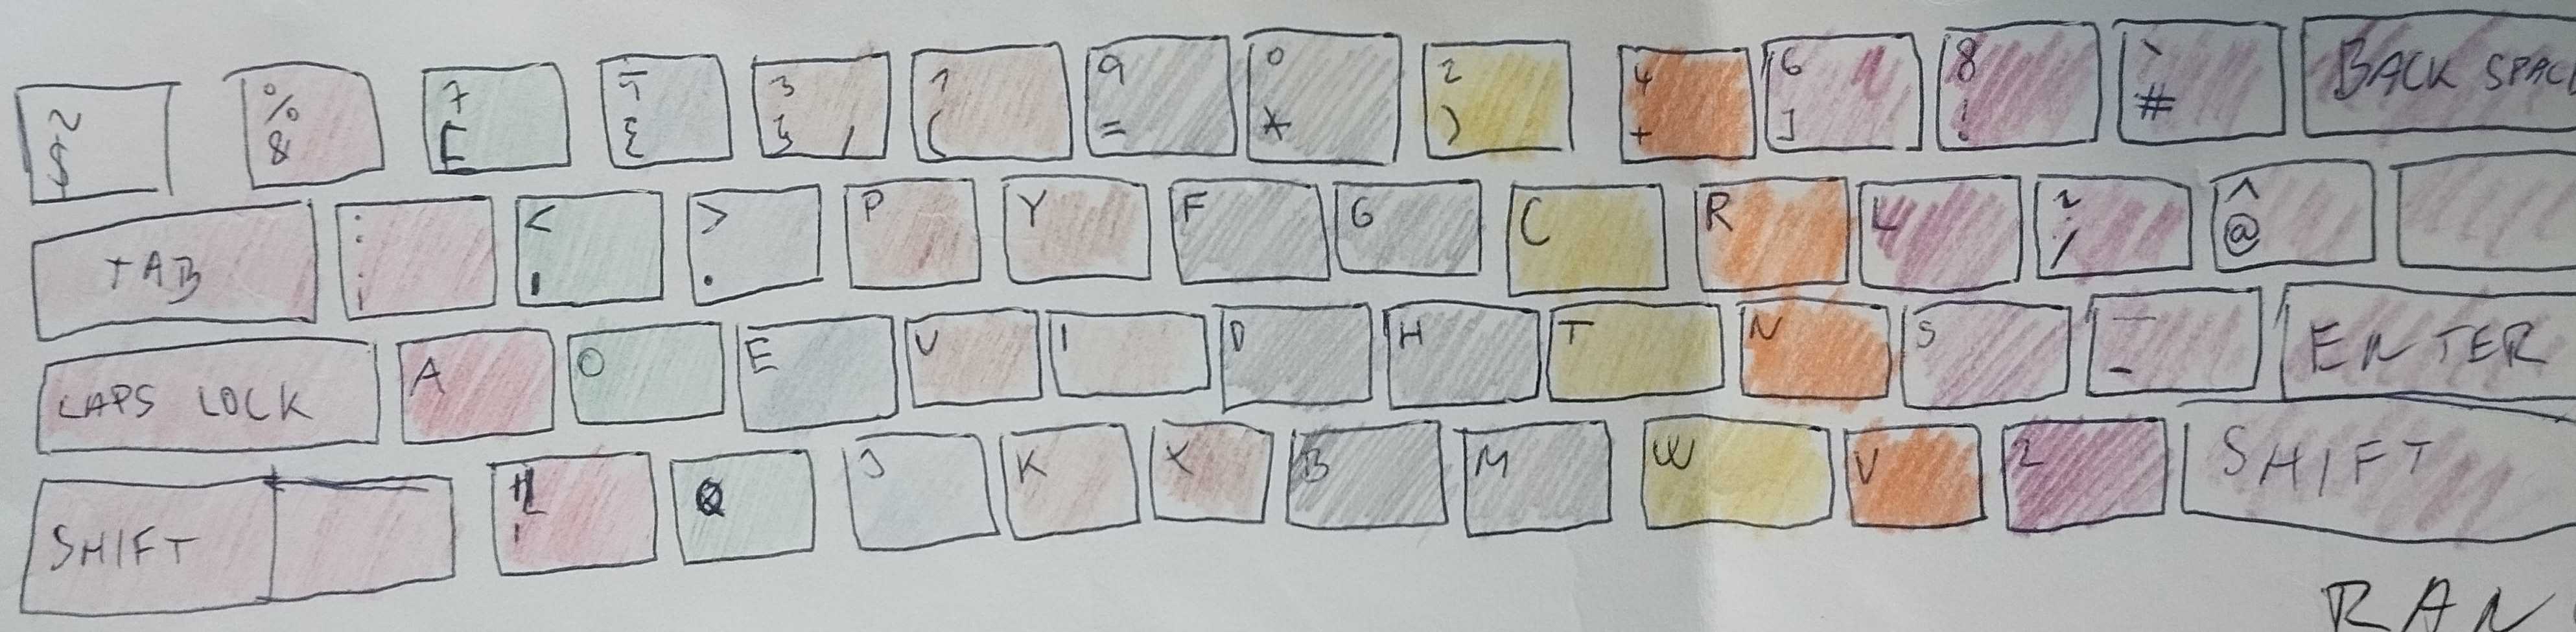 ~ % 7 5 3 1 9 0 2 4 6 8 ` BACK SPAC
$ & [ { } ( = * ) + ] ! #
TAB : < > P Y F G C R L ? ^
; , . / @
CAPS LOCK A O E U I D H T N S — ENTER
-
SHIFT " Q J K X B M W V Z SHIFT
'
RAN